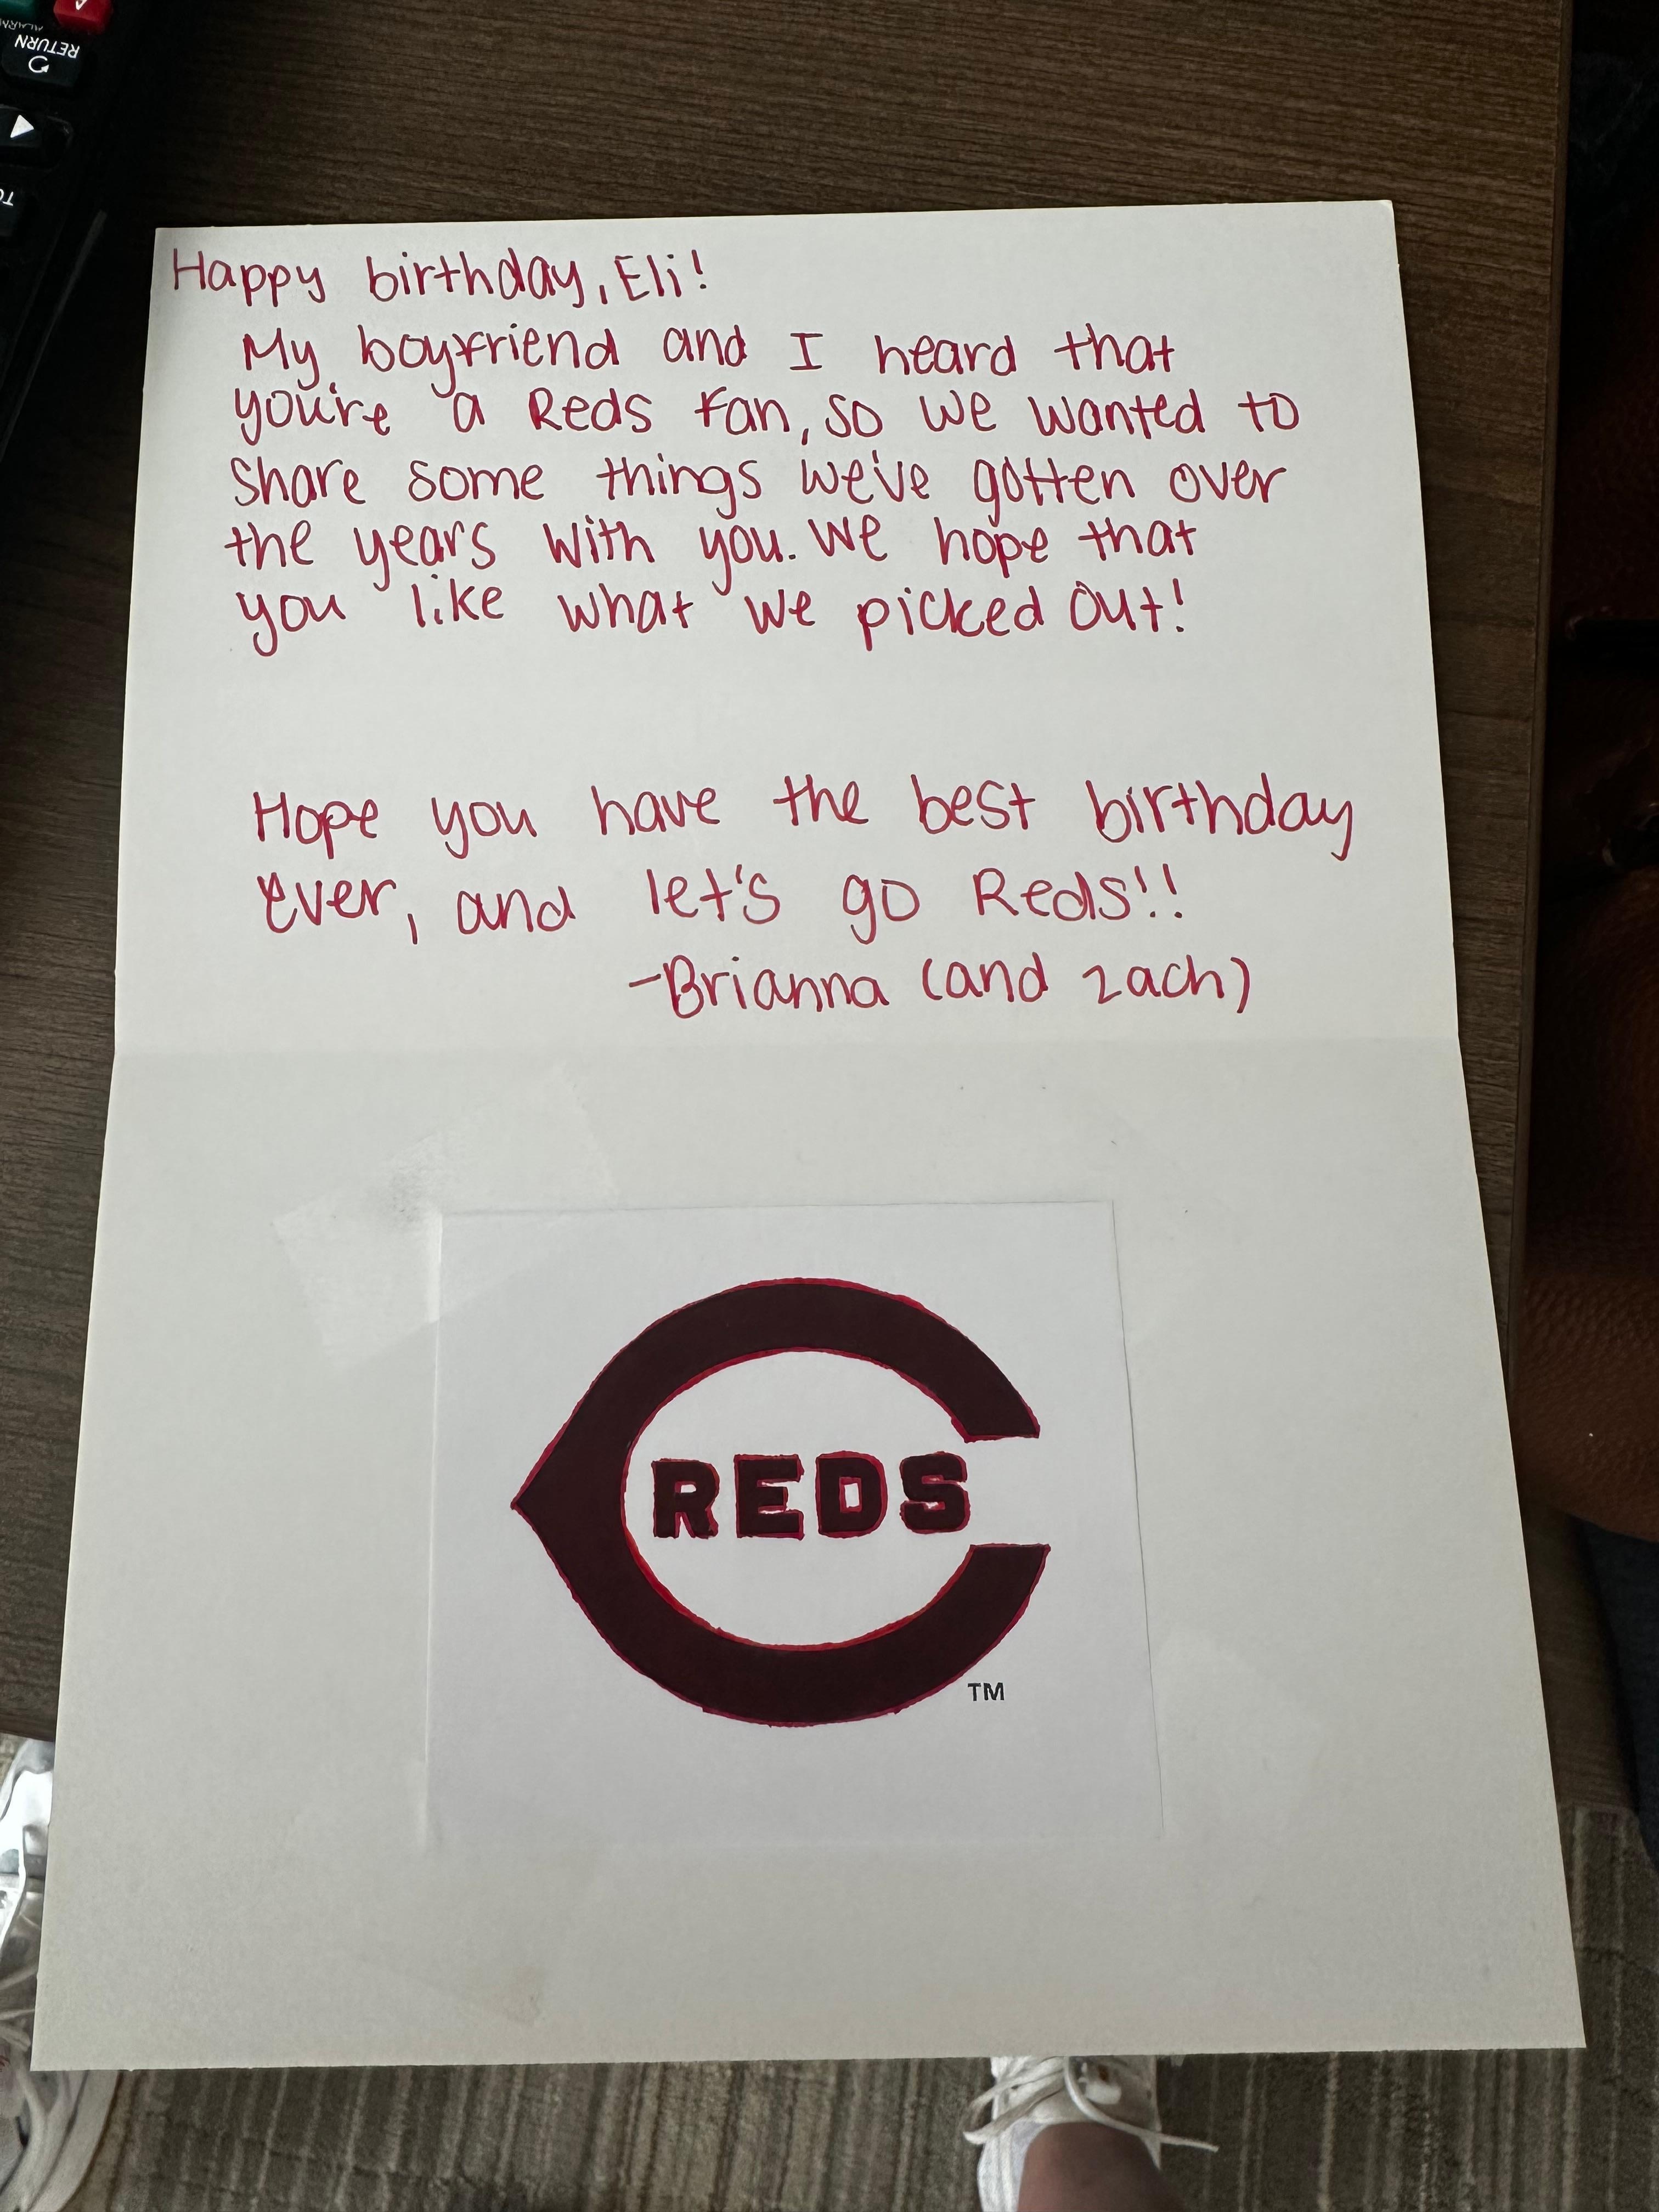 ALARM
RETURN
TO
Happy birthday, Eli!
My boyfriend and I heard that
you're a Reds fan, so we wanted to
share some things we've gotten over
the years with you. We hope that
you like what we picked out!
Hope you have the best birthday
ever, and let's go Reds!!
-Brianna (and Zach)
REDS
TM